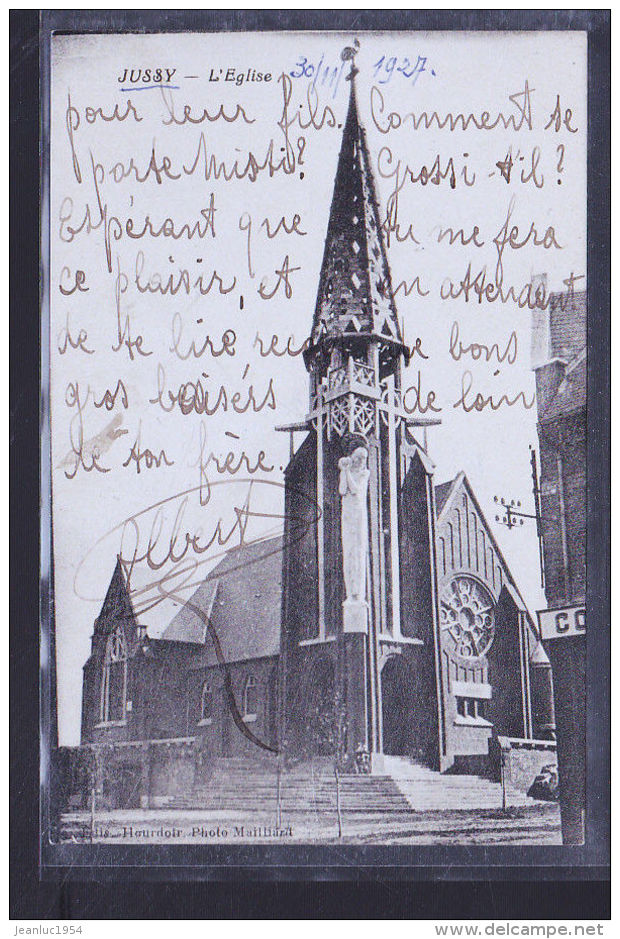 JUSSY — L'Eglise 30/11/1927.
pour leur fils. Comment se
porte Misti? Grossi-t'il?
Espérant que tu me feras
ce plaisir, et en attendent
de te lire recois me bons
gros baisérs de loin
de ton frère.
Albert
CO
Hourdoir Photo Mailliard
jeanluc1954
www.delcampe.net